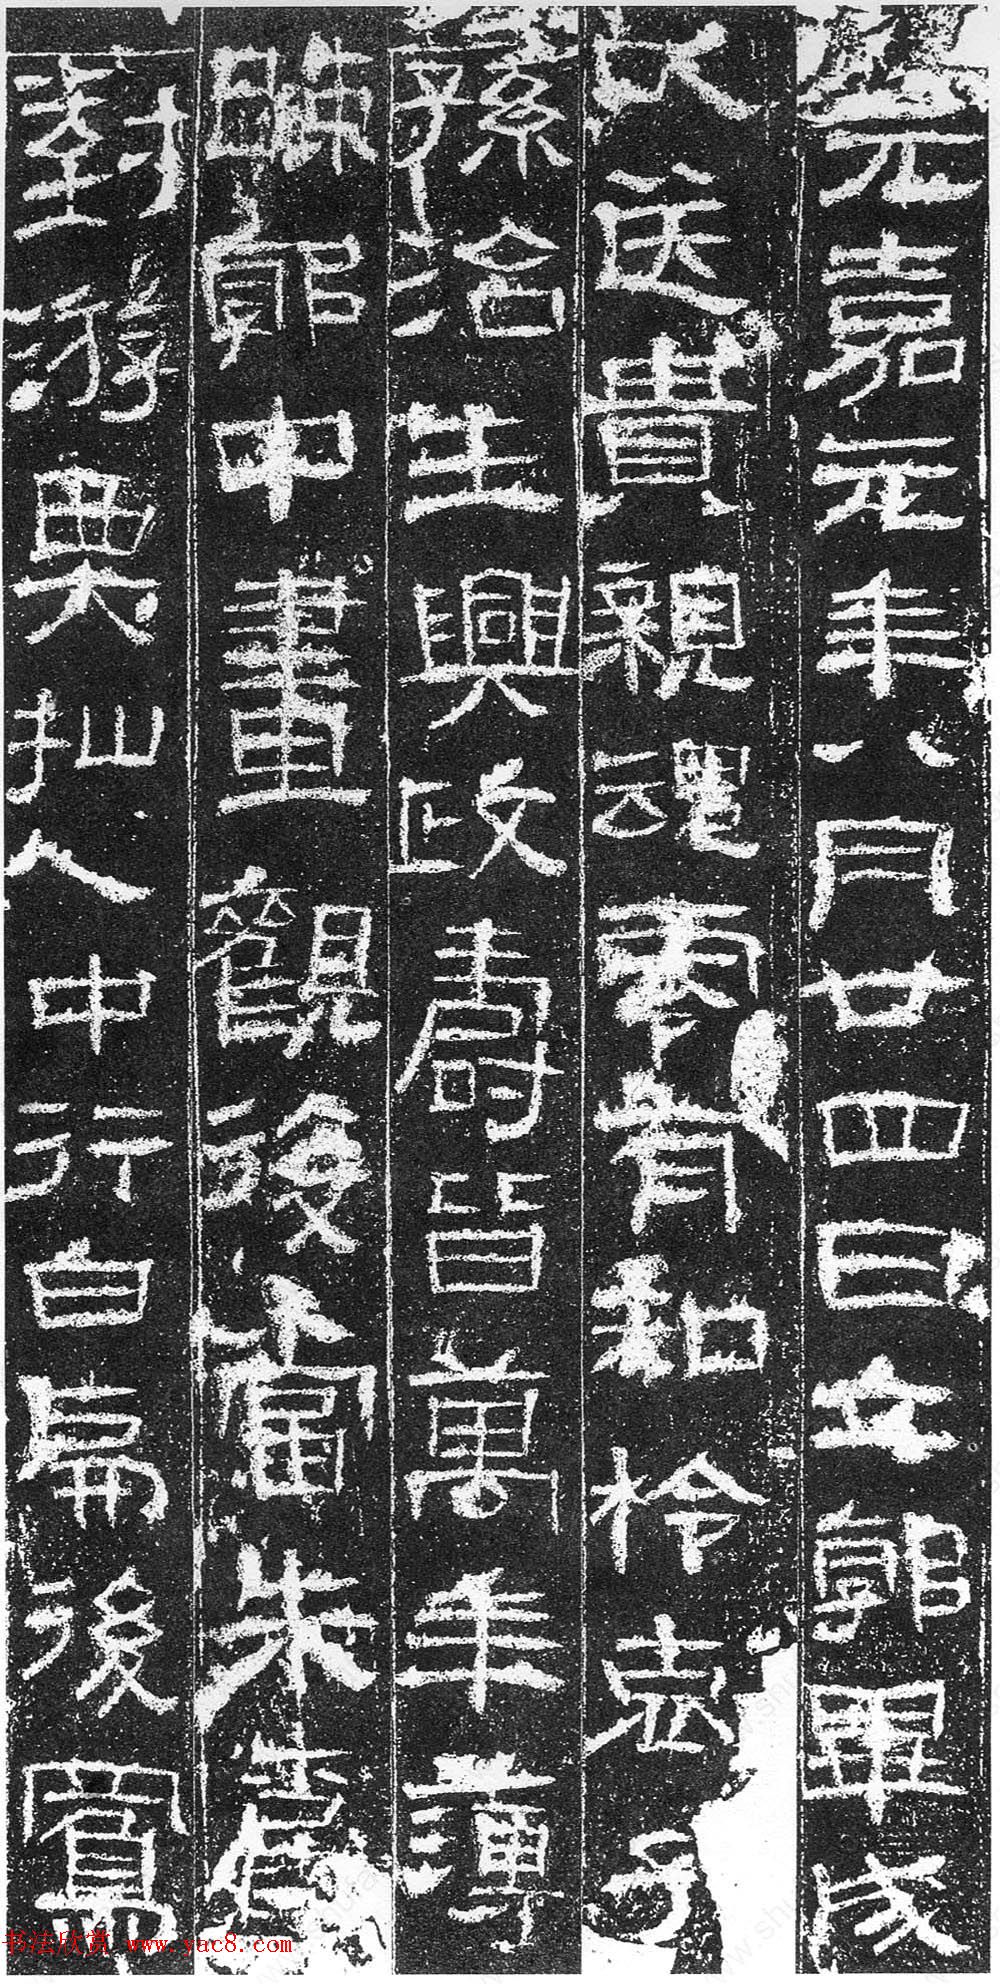 元嘉元年八月廿四日立郭畢成
以送貴親魂零有知柃哀子
孫治生興政壽皆萬年薄
踈郭中畫觀後當朱爵
對游㚇仙人中行白虎後鳳
书法欣赏 www.yac8.com